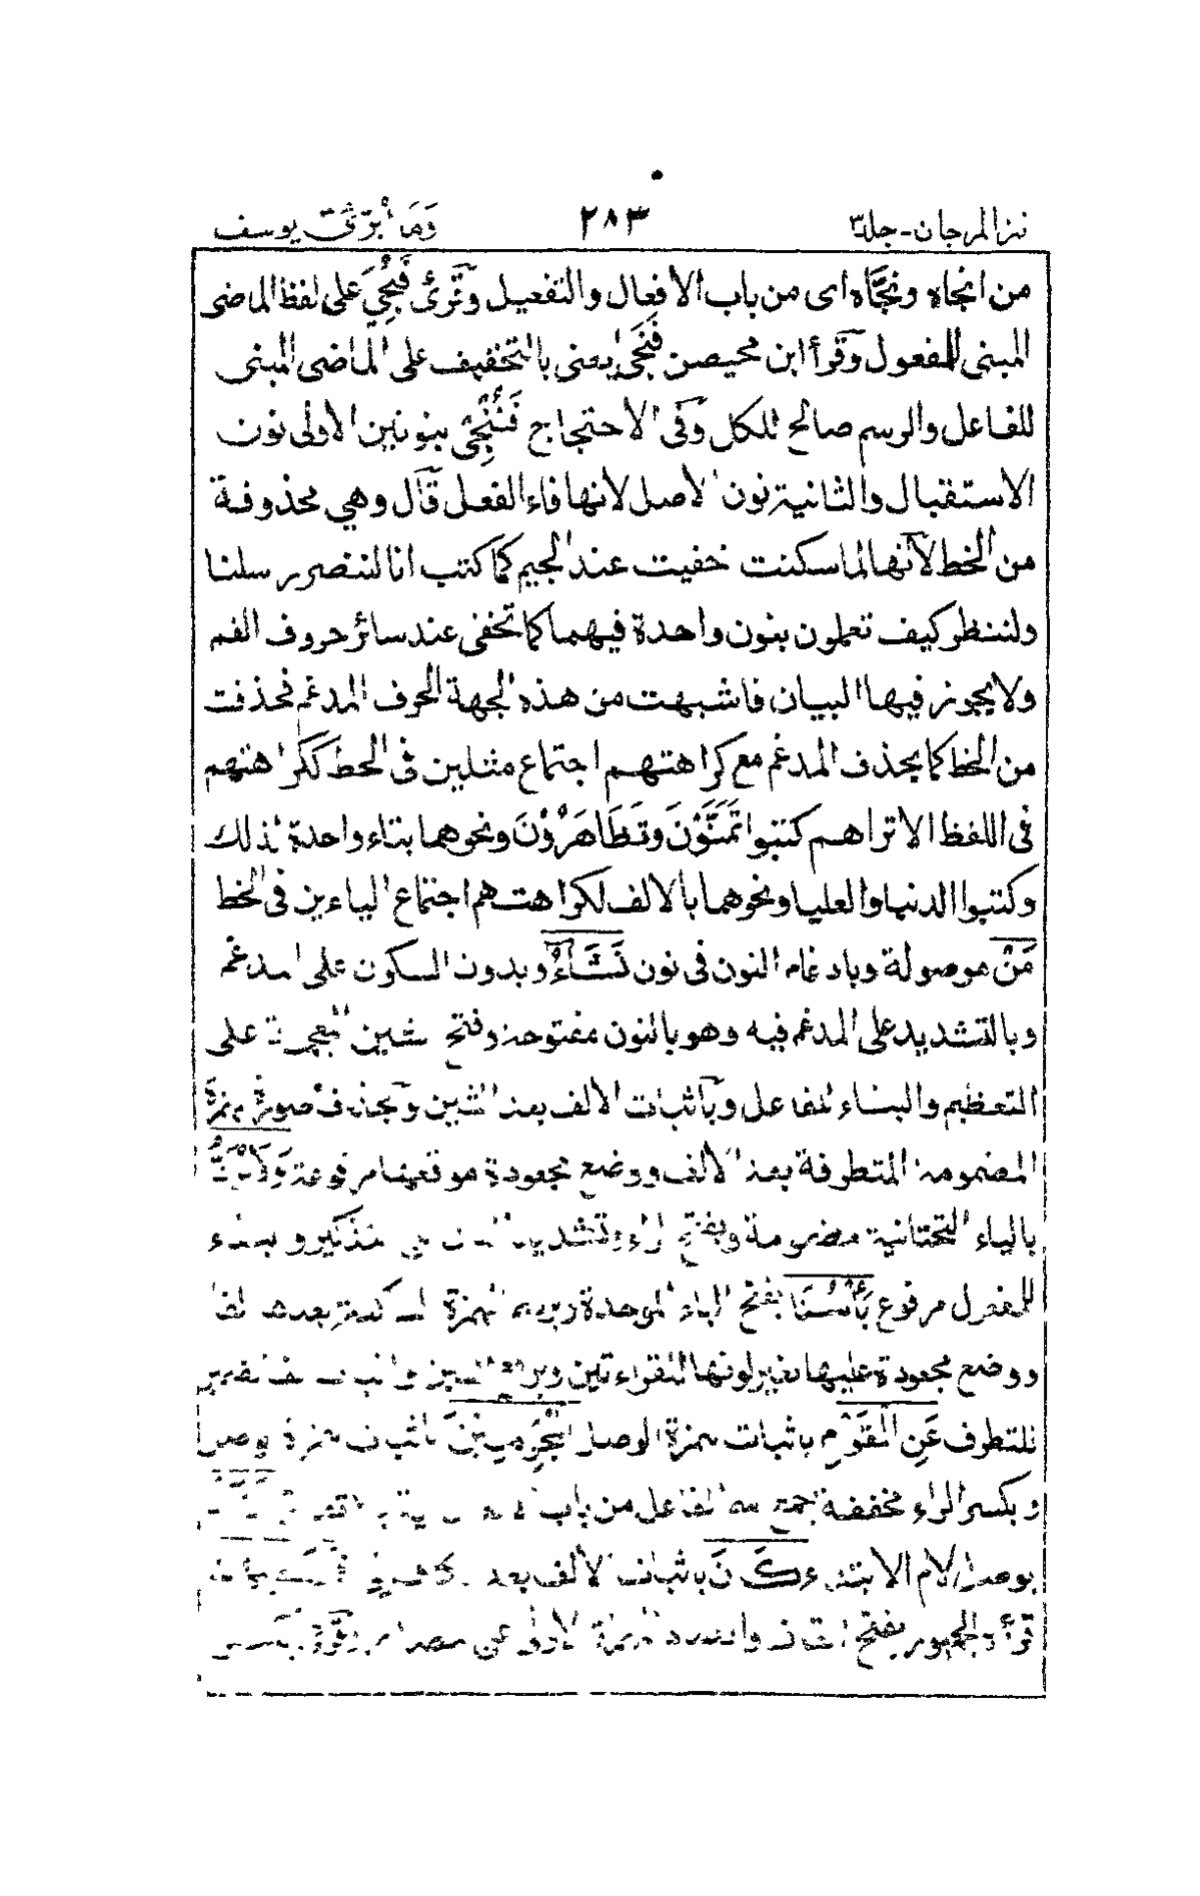 نثر المرجان - جلد ٣ ٢٨٣ وَمَا أُبَرِّئُ يوسف
من انجاه ونَجَّاه اى من باب الافعال والتفعيل وقُرئ فَنُجِّيَ على لفظ الماضى
المبنى للمفعول وقرأ ابن محيصن فَنَجَى يعنى بالتخفيف على الماضى المبنى
للفاعل والرسم صالح للكل وفى الاحتجاج فَنُنْجِى بنونين الاولى نون
الاستقبال والثانية نون الاصل لانها فاء الفعل قال وهي محذوفة
من الخط لانها لما سكنت خفيت عند الجيم كما كتب انا لننصر رسلنا
ولننظر كيف تعملون بنون واحدة فيهما كما تخفى عند سائر حروف الفم
ولا يجوز فيها البيان فاشبهت من هذه الجهة الحرف المدغم فحذفت
من الخط كما يحذف المدغم مع كراهتهم اجتماع مثلين فى الخط ككراهتهم
فى اللفظ الا تراهم كتبوا تَمَنَّوْنَ وتَظَاهَرُوْنَ ونحوهما بتاء واحدة لذلك
وكتبوا الدنيا والعليا ونحوهما بالالف لكراهتهم اجتماع الياءين فى الخط
مَنْ موصولة وبادغام النون فى نون نَشَآءُ وبدون السكون على المدغم
وبالتشديد على المدغم فيه وهو بالنون مفتوحة وفتح شين المعجمة على
التعظيم والبناء للفاعل وباثبات الالف بعد الشين وبحذف صورة همزة
المضمومة المتطرفة بعد الالف ووضع مجعودة موقعها مرفوعة وَلَا يُرَدُّ
بالياء التحتانية مضمومة وبفتح الراء وتشديد تذكير وبناء
للمفعول مرفوع بَأْسُنَا بفتح الباء الموحدة الهمزة الساكنة بعدها الفا
ووضع مجعودة عليها بغير لونها للقراءتين
للتطرف عَنِ الْقَوْمِ باثبات همزة الوصل الْمُجْرِمِيْنَ باثبات همزة الوصل
وبكسر الراء مخففة جمع الفاعل من باب
بوصل لام الابتداء كَانَ باثبات الالف بعد
قرأ الجمهور بفتح